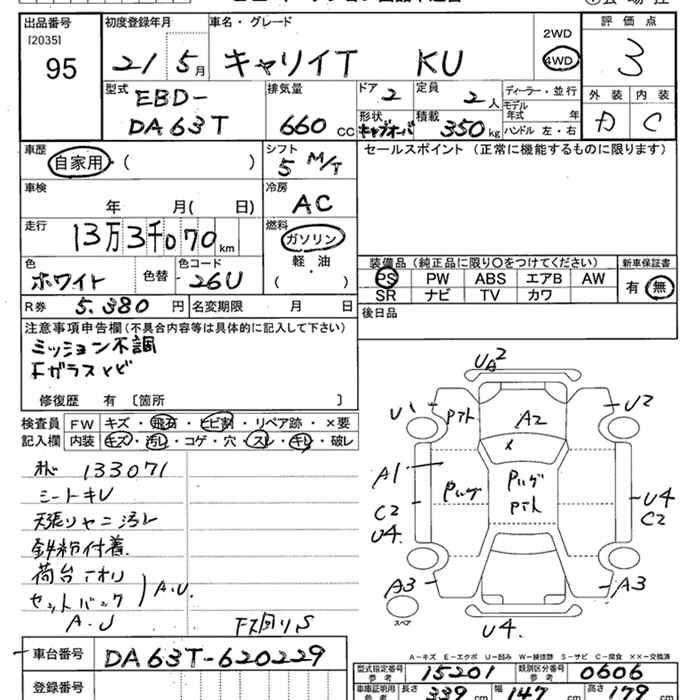 出品番号 初度登録年月 車名・グレード 2WD 評価点
[2035] 95 21 5月 キャリイT KU 4WD 3
型式 EBD-DA63T 排気量 660 CC ドア 2 定員 2人 ディーラー・並行 外装 内装
形状 キャブオーバ 積載 350kg モデル年式 年 ハンドル 左・右 C
車歴 自家用・( ) シフト 5 M/T セールスポイント (正常に機能するものに限ります)
車検 年 月( 日) 冷房 AC
走行 13万3千070km 燃料 ガソリン 軽油 ( )
装備品 (純正品に限り〇をつけてください) 新車保証書
色 ホワイト 色替 色コード 26U PS PW ABS エアB AW 有・無
SR ナビ TV カワ
R券 5.380 円 名変期限 月 日 後日品
注意事項申告欄(不具合内容等は具体的に記入して下さい)
ミッション不調
Fガラスヒビ
修復歴 有 〔箇所 〕
検査員記入欄 FW キズ・飛石・ヒビ割・リペア跡・×要
内装 キズ・汚レ・コゲ・穴・スレ・キレ・破レ
133071
シートキレ
天張りヤニ汚レ
鉄粉付着
荷台
セットバック A.U.
A.U
F天回りS
UA2
U1 Pアト A2 U2
X
A1 Pハゲ Pハゲ Pアト
C2 U4. U4 C2
A3 A3
スペア
U4.
A-キズ E-エクボ U-凹み W-補修跡 S-サビ C-腐食 XX-交換済
車台番号 DA63T-620229
型式指定番号 参考 15201 類別区分番号 参考 0606
登録番号
車庫証明用 参考 長さ 339 cm 幅 147 cm 高さ 179 cm